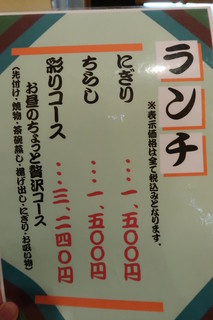 ランチ
※表示価格は全て税込みとなります。
にぎり ・・・一、五〇〇円
ちらし ・・・一、五〇〇円
彩りコース ・・・三、二四〇円
お昼のちょっと贅沢コース
(先付け・焼物・茶碗蒸し・揚げ出し・にぎり・お吸い物)